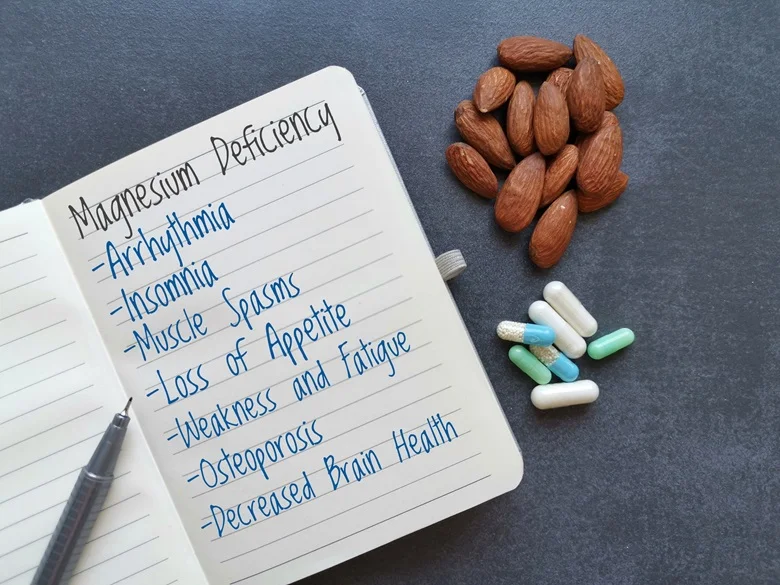 Magnesium Deficiency
-Arrhythmia
-Insomnia
-Muscle Spasms
-Loss of Appetite
-Weakness and Fatigue
-Osteoporosis
-Decreased Brain Health